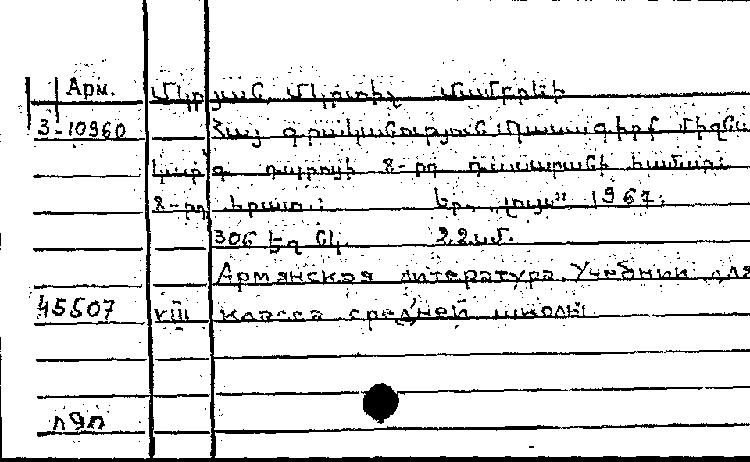 Арм. Մկրյան, Մկրտիչ Մամբրեի
3-10960 Հայ գրականություն: Դասագիրք միջնա
կարգ դպրոցի 8-րդ դասարանի համար:
8-րդ հրատ.: Եր., „Լույս” 1967:
306 էջ նկ. 22սմ.
Армянская литература. Учебник для
45507 VIII класса средней школы